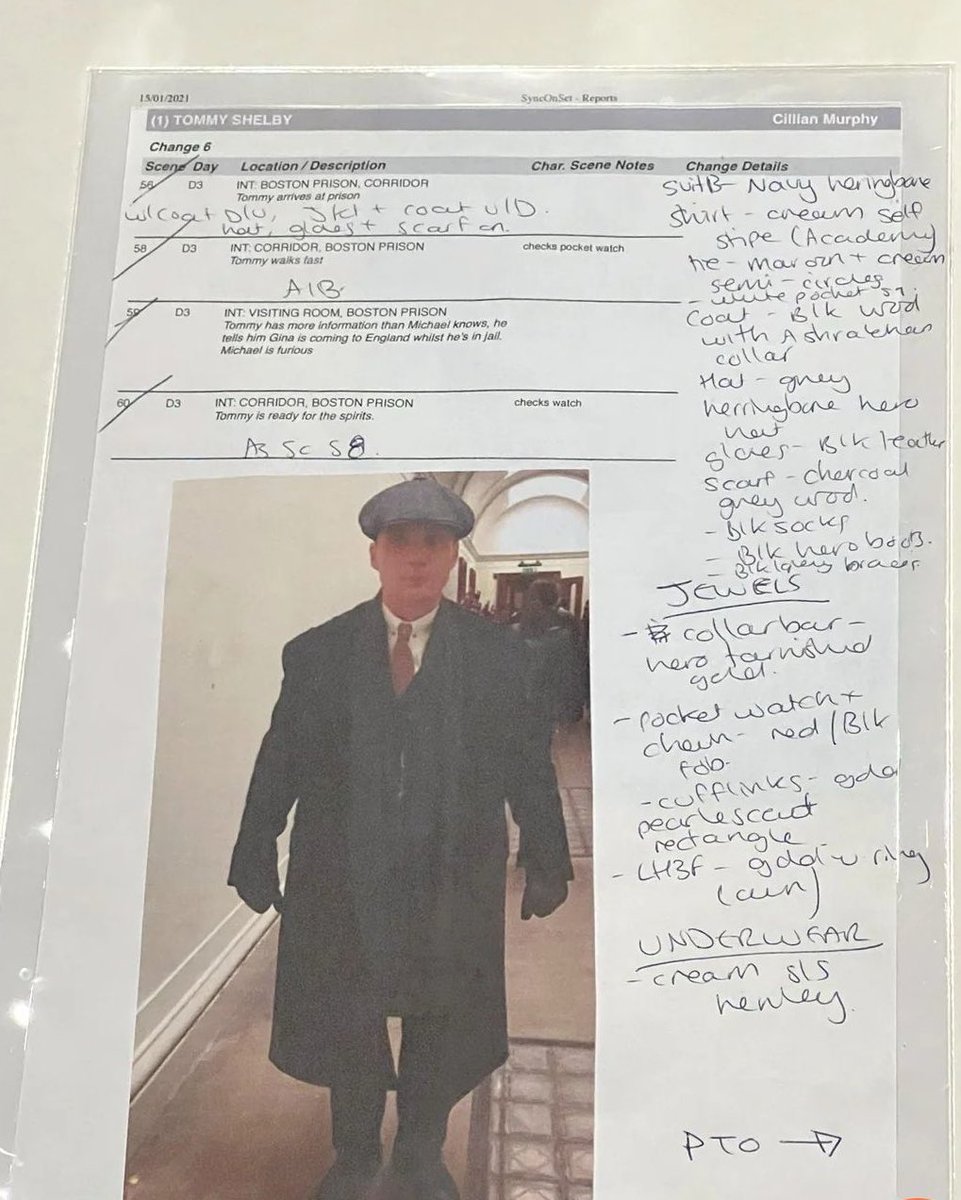 15/01/2021
SyncOnSet - Reports
(1) TOMMY SHELBY
Cillian Murphy
Change 6
Scene Day Location / Description Char. Scene Notes Change Details
56 D3 INT: BOSTON PRISON, CORRIDOR
Tommy arrives at prison
w/coat D/U, Jkt + coat U/D.
hat, gloves + scarf on.
58 D3 INT: CORRIDOR, BOSTON PRISON checks pocket watch
Tommy walks fast
A/B
59 D3 INT: VISITING ROOM, BOSTON PRISON
Tommy has more information than Michael knows, he
tells him Gina is coming to England whilst he's in jail.
Michael is furious
60 D3 INT: CORRIDOR, BOSTON PRISON checks watch
Tommy is ready for the spirits.
AB SC 58.
Suit B - Navy heringbone
Shirt - cream self
stipe (Academy)
tie - maroon + cream
semi-circles
- white pocket
Coat - Blk wool
with Ashrakhan
collar
Hat - grey
herringbone hero
hat
gloves - Blk leather
Scarf - charcoal
grey wool.
- Blk socks
- Blk hero boots.
- Blk/grey braces
JEWELS
- collarbar -
hero tarnished
gold.
- pocket watch +
chain - red/Blk
fob.
- cufflinks - gold
pearlescent
rectangle
- LH3F - gold ring
(own)
UNDERWEAR
- cream S/S
henley.
PTO →